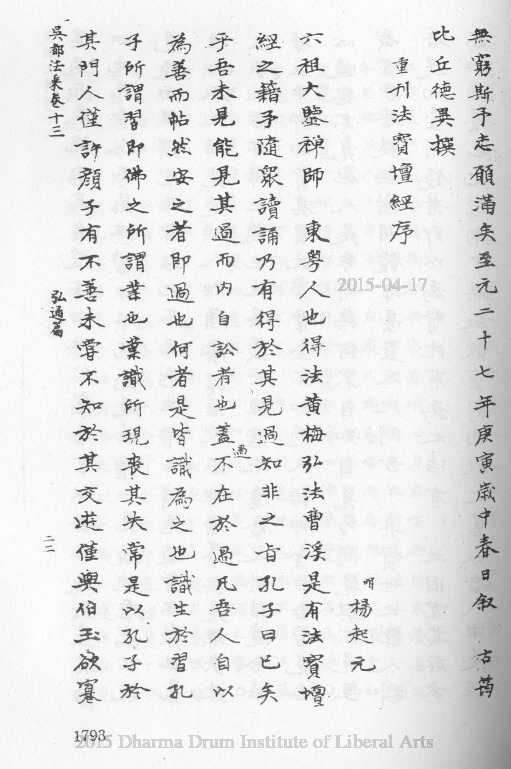 無窮斯予志願滿矣至元二十七年庚寅歲中春日叙 古筠
比丘德異撰
重刊法寶壇經序
明楊起元
六祖大鑒禅師 東粤人也得法黄梅弘法曹溪是有法寶壇
經之籍予隨衆讀誦乃有得於其見過知非之旨孔子曰已矣
乎吾未見能見其過而内自訟者也蓋過不在於過凡吾人自以
為善而帖然安之者即過也何者是皆識為之也識生於習孔
子所謂習即佛之所謂業也業識所現喪其失常是以孔子於
其門人僅許顔子有不善未嘗不知於其交遊僅與伯玉欲寡
吴都法乘卷十三
弘通篇
二二
1793
2015-04-17
2015 Dharma Drum Institute of Liberal Arts